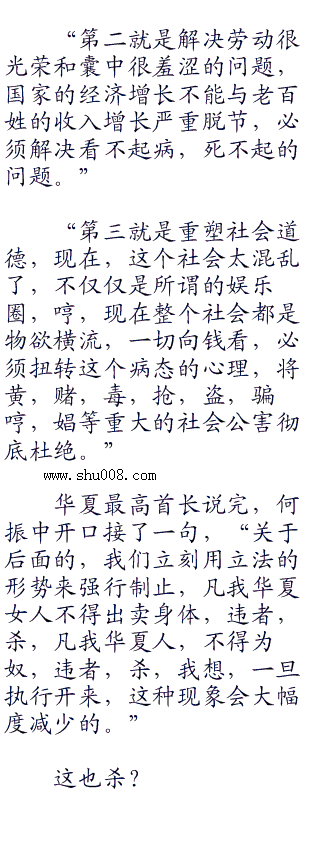 “第二就是解决劳动很
光荣和囊中很羞涩的问题，
国家的经济增长不能与老百
姓的收入增长严重脱节，必
须解决看不起病，死不起的
问题。”
“第三就是重塑社会道
德，现在，这个社会太混乱
了，不仅仅是所谓的娱乐
圈，哼，现在整个社会都是
物欲横流，一切向钱看，必
须扭转这个病态的心理，将
黄，赌，毒，抢，盗，骗
哼，娼等重大的社会公害彻
底杜绝。”
www.shu008.com
华夏最高首长说完，何
振中开口接了一句，“关于
后面的，我们立刻用立法的
形势来强行制止，凡我华夏
女人不得出卖身体，违者，
杀，凡我华夏人，不得为
奴，违者，杀，我想，一旦
执行开来，这种现象会大幅
度减少的。”
这也杀？